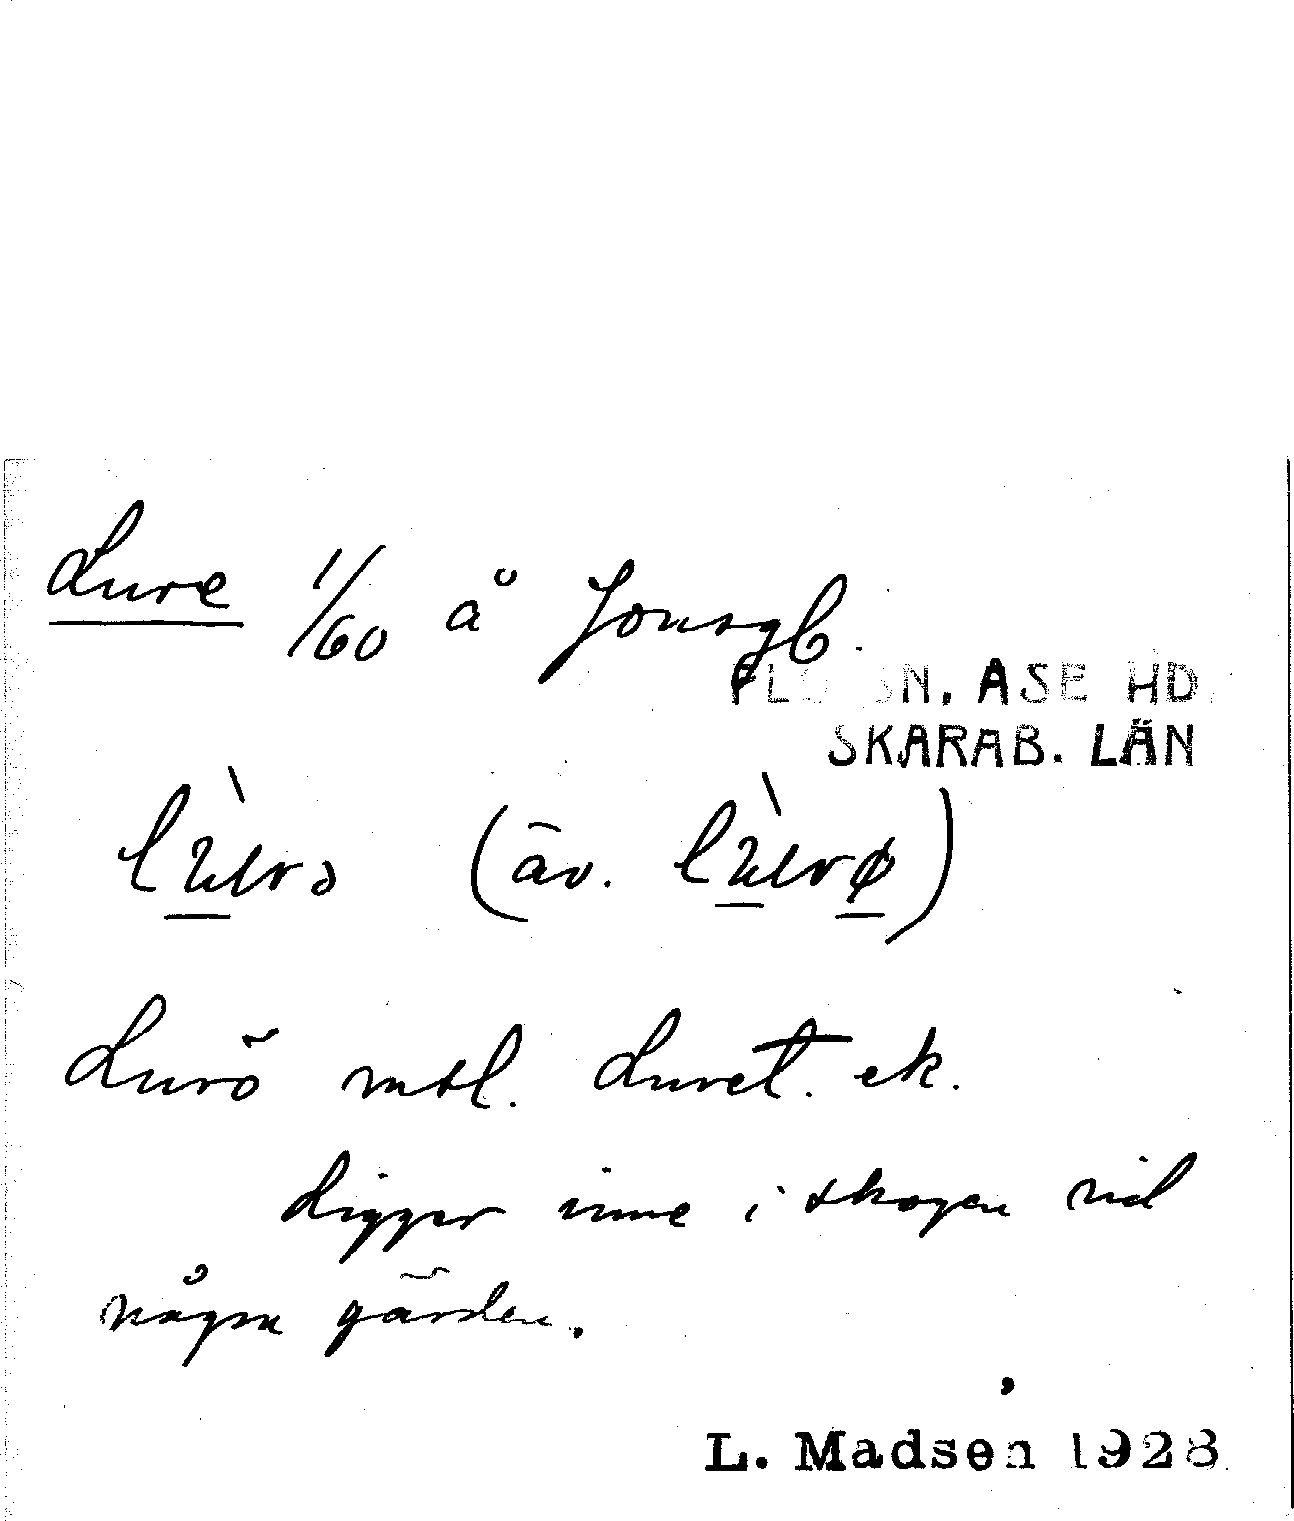 Lure 1/60 å Jonsgb.
FLO SN. ÅSE HD
SKARAB. LÄN
(äv.
Lurö mtl. Luret. ek.
Ligger inne i skogen vid
några gärden.
L. Madsén 1928